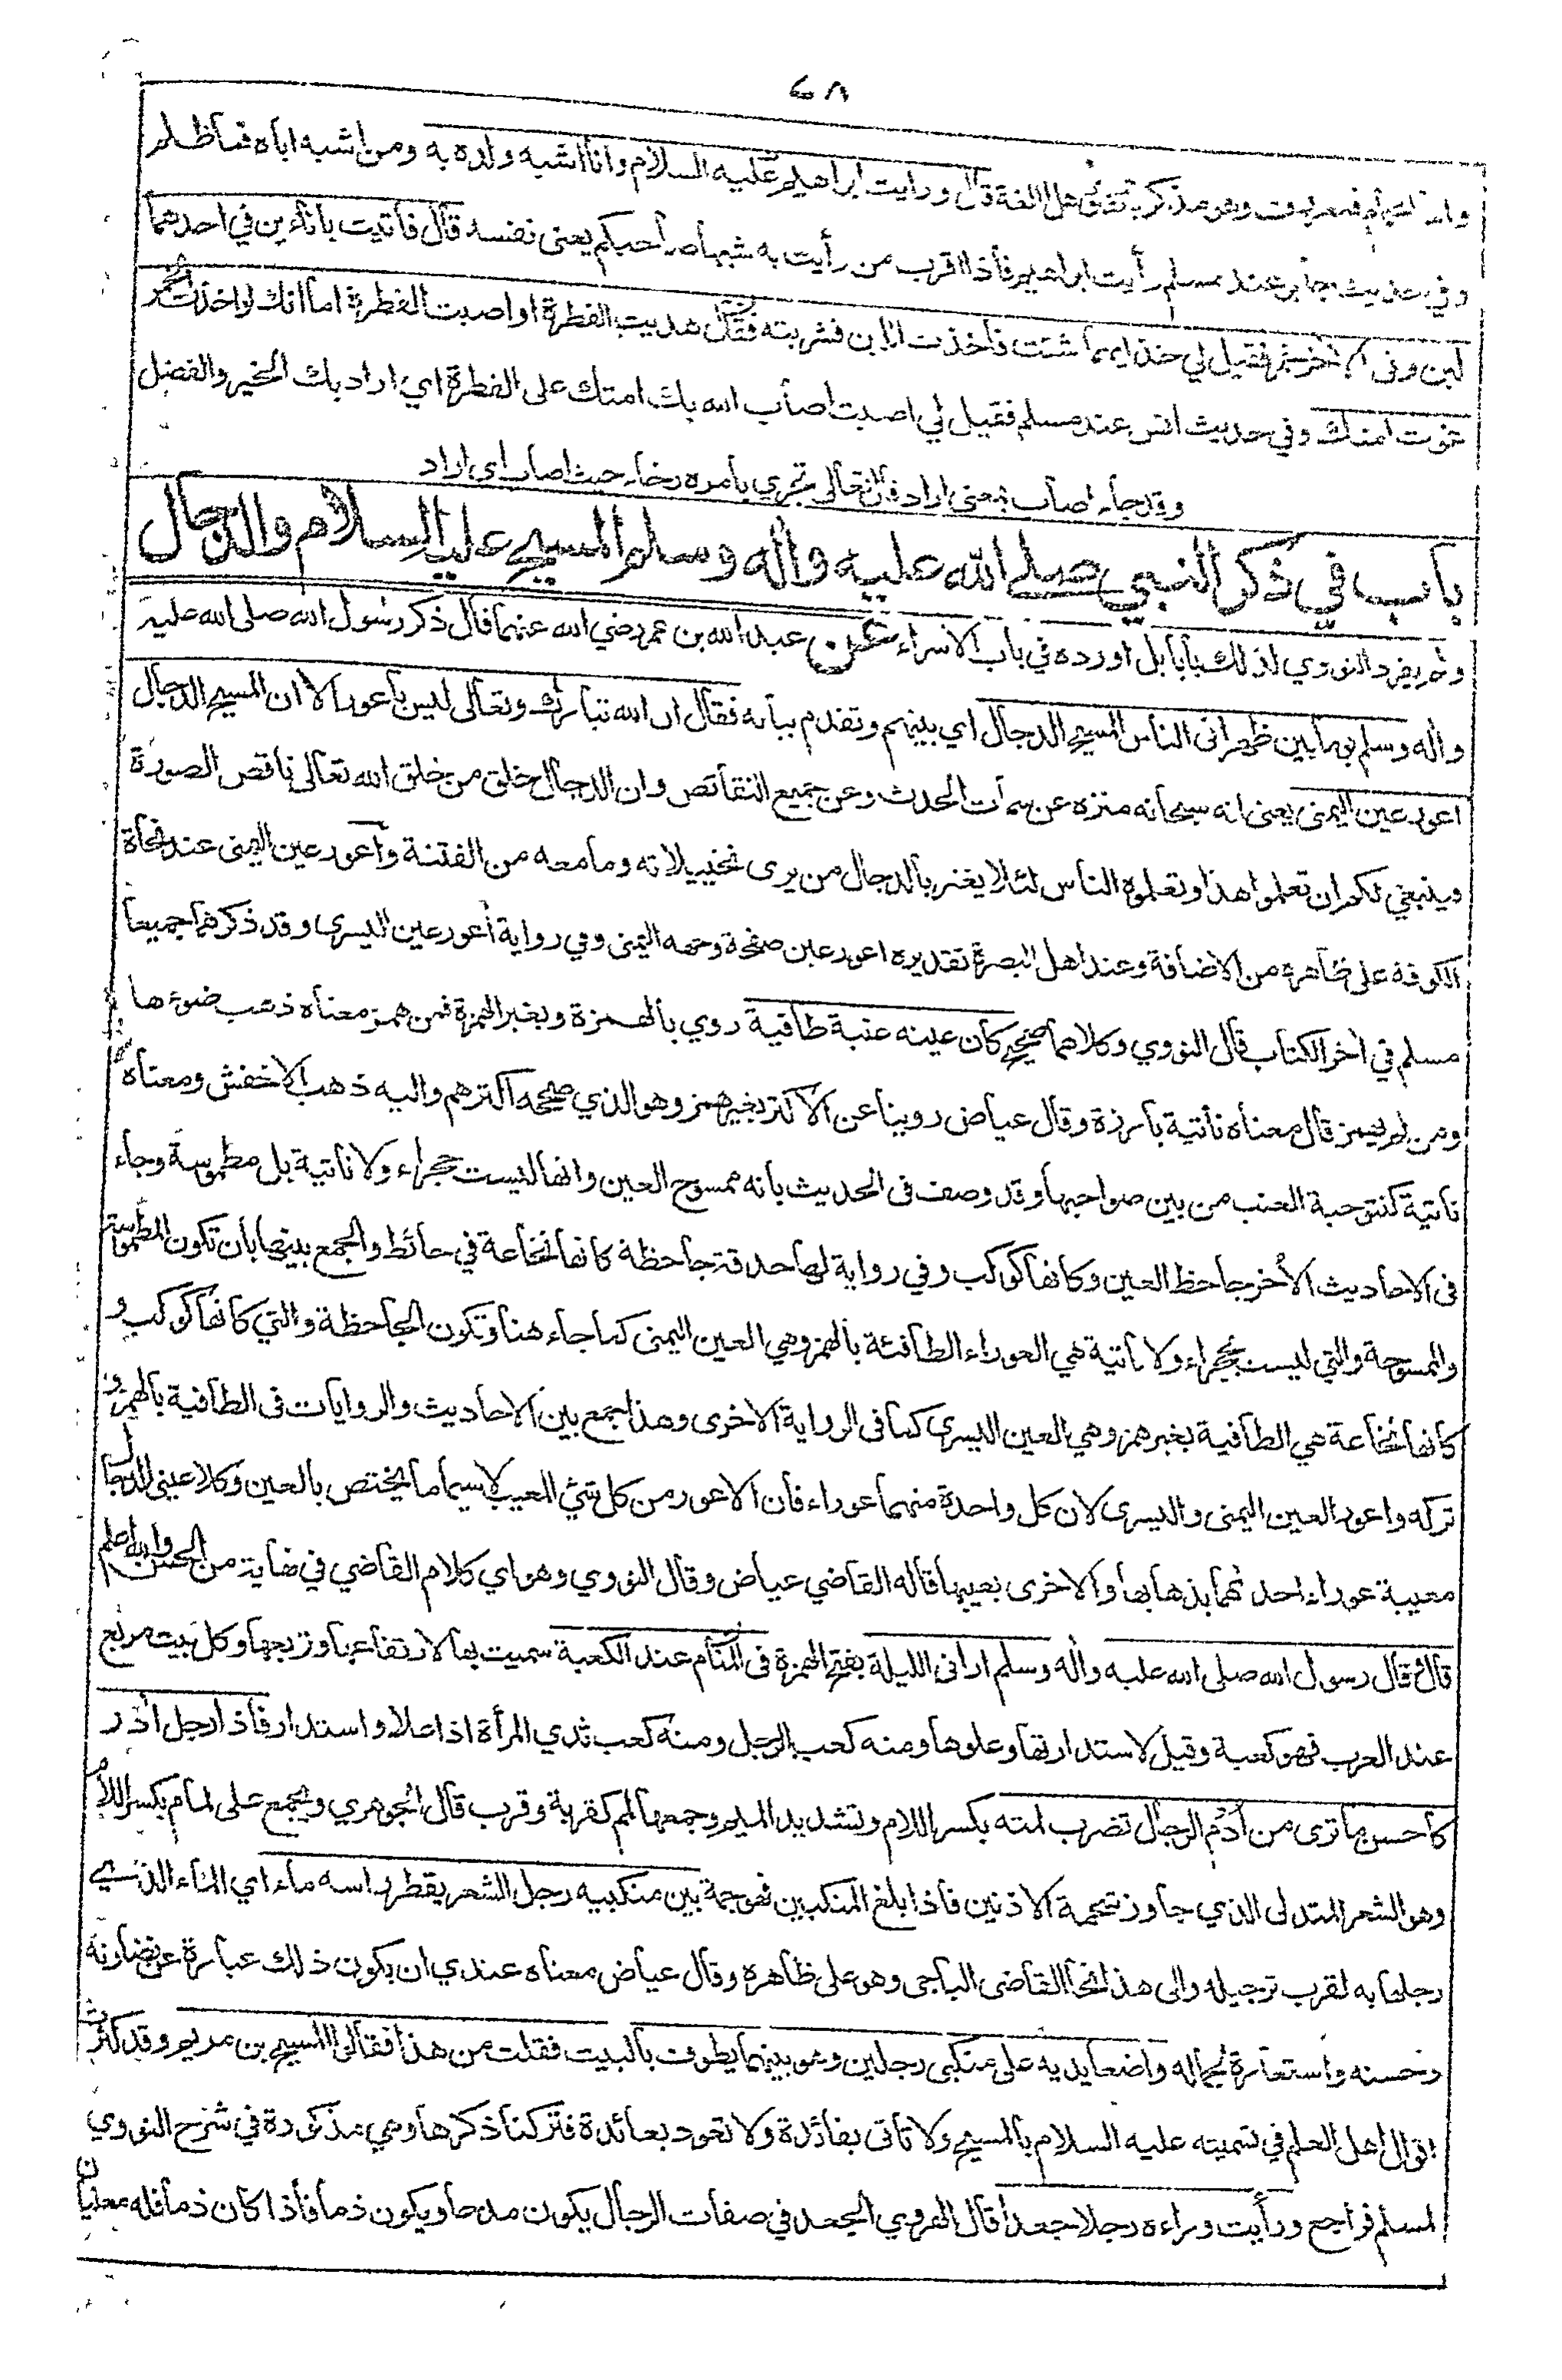 ٦٨
فمعروف وهو مذكر باتفاق اهل اللغة قال ورايت ابراهيم عليه السلام وانا اشبه ولده به ومن اشبه اباه فما ظلم
وفي حديث جابر عند مسلم رأيت ابراهيم فاذا اقرب من رأيت به شبها صاحبكم يعنى نفسه قال فأتيت باناءين في احدهما
لبن وفى الاخر خمر فقيل لي خذ ايهما شئت فأخذت اللبن فشربته فقال هديت الفطرة او اصبت الفطرة اما انك لو اخذت الخمر
غوت امتك وفي حديث انس عند مسلم فقيل لي اصبت اصاب الله بك امتك على الفطرة اي اراد بك الخير والفضل
وقد جاء اصاب بمعنى اراد قال تعالى تجري بأمره رخاء حيث اصاب اى اراد
باب في ذكر النبي صلى الله عليه واله وسلم المسيح عليه السلام والدجال
ولم يفرد النووي لذلك بابا بل اورده في باب الاسراء عن عبد الله بن عمر رضي الله عنهما قال ذكر رسول الله صلى الله عليه
واله وسلم يوما بين ظهرانى الناس المسيح الدجال اي بينهم وتقدم بيانه فقال ان الله تبارك وتعالى ليس باعور الا ان المسيح الدجال
اعور عين اليمنى يعنى انه سبحانه منزه عن سمات الحدث وعن جميع النقائص وان الدجال خلق من خلق الله تعالى ناقص الصورة
وينبغي لكم ان تعلموا هذا وتعلموه الناس لئلا يغتر بالدجال من يرى تخييلاته وما معه من الفتنة واعور عين اليمنى عند نحاة
الكوفة على ظاهره من الاضافة وعند اهل البصرة تقديره اعور عين صفحة وجهه اليمنى وفي رواية أعور عين اليسرى وقد ذكرهما جميعا
مسلم في اخر الكتاب قال النووي وكلاهما صحيح كان عينه عنبة طافية روي بالهمزة وبغير الهمزة فمن همز معناه ذهب ضوءها
ومن لم يهمز قال معناه ناتية بارزة وقال عياض روينا عن الاكثر بغير همز وهو الذي صححه اكثرهم واليه ذهب الاخفش ومعناه
ناتية كنتو حبة العنب من بين صواحبها وقد وصف فى الحديث بانه ممسوح العين وانها ليست حجراء ولا ناتية بل مطموسة وجاء
فى الاحاديث الأخر جاحظ العين وكانها كوكب وفي رواية لها حدقة جاحظة كانها نخاعة في حائط والجمع بينها بان تكون المطموسة
والممسوحة والتي ليست بحجراء ولا ناتية هي العوراء الطافئة بالهمز وهي العين اليمنى كما جاء هنا وتكون الجاحظة والتي كانها كوكب و
كانها نخاعة هي الطافية بغير همز وهي العين اليسرى كما فى الرواية الاخرى وهذا جمع بين الاحاديث والروايات فى الطافية بالهمز و
تركه واعور العين اليمنى واليسرى لان كل واحدة منهما عوراء فان الاعور من كل شي المعيب لاسيما ما يختص بالعين وكلا عيني الدجال
معيبة عوراء احدهما بذهابها والاخرى بعيبها قاله القاضي عياض وقال النووي وهو اي كلام القاضي في نهاية من الحسن والله اعلم
قال قال رسول الله صلى الله عليه واله وسلم ارانى الليلة بفتح الهمزة فى المنام عند الكعبة سميت بها لارتفاعها وتربيعها وكل بيت مربع
عند العرب فهو كعبة وقيل لاستدارتها وعلوها ومنه كعب الرجل ومنه كعب ثدي المرأة اذا علا واستدار فاذا رجل أدم
كأحسن ما ترى من أدم الرجال تضرب لمته بكسر اللام وتشديد الميم وجمعها لمم كقربة وقرب قال الجوهري ويجمع على لمام بكسر اللام
وهو الشعر المتدلى الذي جاوز شحمة الاذنين فاذا بلغ المنكبين فهو جمة بين منكبيه رجل الشعر يقطر راسه ماء اي الماء الذي
رجلها به لقرب ترجيله والى هذا نحا القاضى الباجى وهو على ظاهره وقال عياض معناه عندي ان يكون ذلك عبارة عن نضارته
وحسنه واستعارة لجماله واضعا يديه على منكبى رجلين وهو بينهما يطوف بالبيت فقلت من هذا فقالوا المسيح بن مريم وقد كثرت
اقوال اهل العلم في تسميته عليه السلام بالمسيح ولا تأتى بفائدة ولا تعود بعائدة فتركنا ذكرها وهي مذكورة في شرح النووي
لمسلم فراجع ورأيت وراءه رجلا جعدا قال الهروي الجعد في صفات الرجال يكون مدحا ويكون ذما فاذا كان ذما فله معنيان